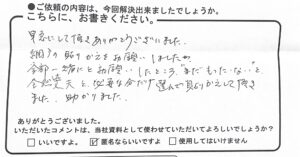 ●ご依頼の内容は、今回解決出来ましたでしょうか。
こちらに、お書きください。
早急にして頂きありがとうございました。
網戸の貼りかえをお願いしましたが、
全部一緒にとお願いしたところ、"まだもったいない"と
必要な分だけ選んで貼りかえして頂き
ました。助かりました。
ありがとうございました。
いただいたコメントは、当社資料として使わせていただいてよろしいでしょうか?
□いいですよ。 ☑匿名ならいいですよ □使用してはいけません